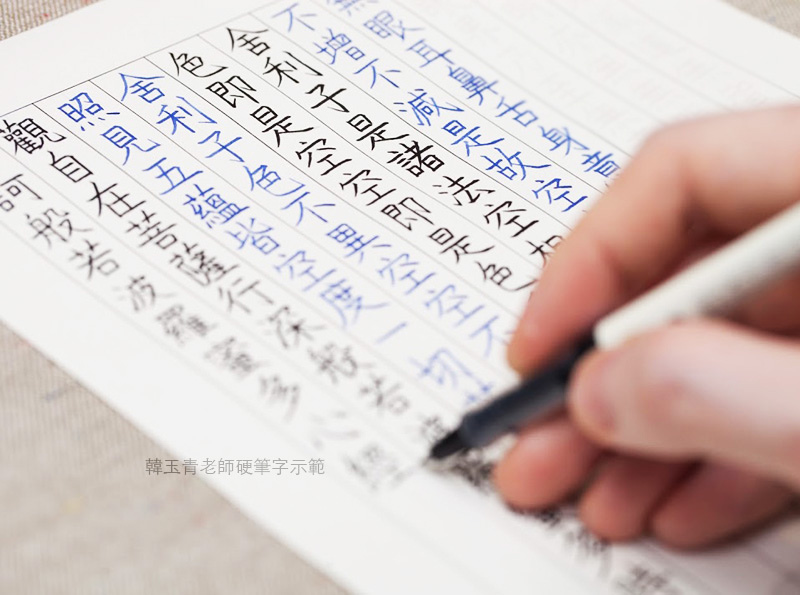 訶般若波羅蜜多心經
觀自在菩薩行深般若
照見五蘊皆空度一切
舍利子色不異空空不
色即是空空即是色
舍利子是諸法空相
不增不減是故空
無眼耳鼻舌身意
韓玉青老師硬筆字示範